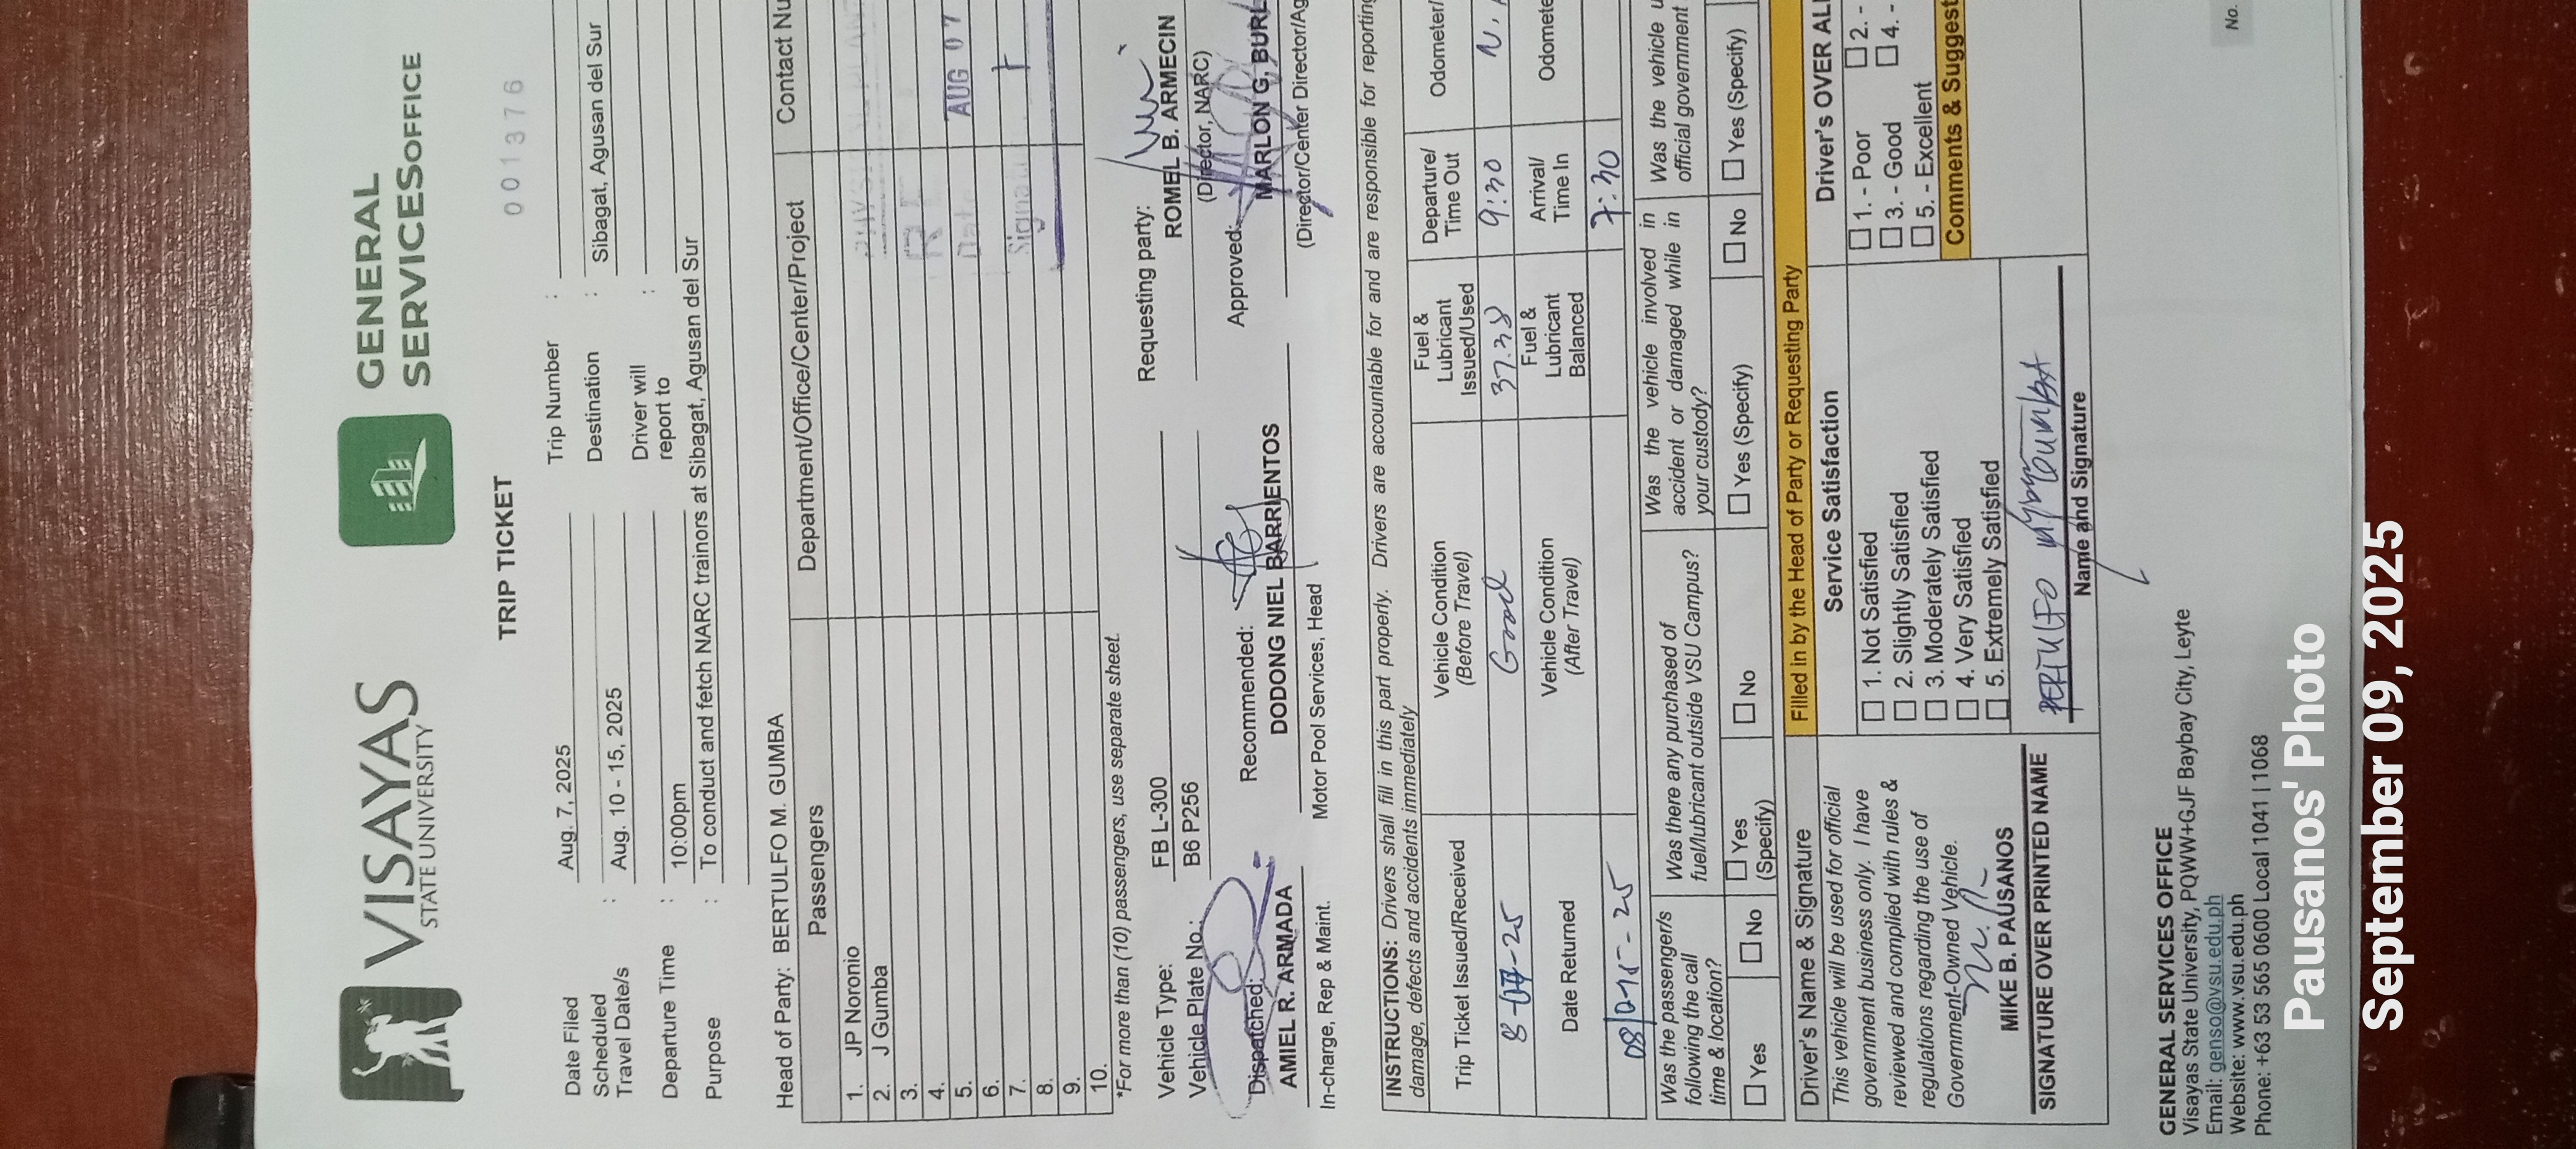 VISAYAS
STATE UNIVERSITY
GENERAL
SERVICES OFFICE
001376
TRIP TICKET
Date Filed : Aug. 7, 2025
Trip Number :
Scheduled
Travel Date/s : Aug. 10 - 15, 2025
Destination : Sibagat, Agusan del Sur
Departure Time : 10:00pm
Driver will
report to :
Purpose : To conduct and fetch NARC trainors at Sibagat, Agusan del Sur
Head of Party: BERTULFO M. GUMBA
Passengers Department/Office/Center/Project Contact Nu
1. JP Noronio
2. J Gumba
3.
4.
5. Date AUG 07
6.
7. Signatu
8.
9.
10.
*For more than (10) passengers, use separate sheet.
Vehicle Type: FB L-300
Vehicle Plate No.: B6 P256
Requesting party:
ROMEL B. ARMECIN
(Director, NARC)
Dispatched:
AMIEL R. ARMADA
In-charge, Rep & Maint.
Recommended:
DODONG NIEL BARRIENTOS
Motor Pool Services, Head
Approved:
MARLON G. BURL
(Director/Center Director/Ag
INSTRUCTIONS: Drivers shall fill in this part properly. Drivers are accountable for and are responsible for reporting
damage, defects and accidents immediately
Trip Ticket Issued/Received
Vehicle Condition
(Before Travel)
Fuel &
Lubricant
Issued/Used
Departure/
Time Out
Odometer/
8-07-25 Good 37.38 9:30 N.
Date Returned
Vehicle Condition
(After Travel)
Fuel &
Lubricant
Balanced
Arrival/
Time In
Odomete
08/015-25 7:30
Was the passenger/s
following the call
time & location?
Was there any purchased of
fuel/lubricant outside VSU Campus?
Was the vehicle involved in
accident or damaged while in
your custody?
Was the vehicle u
official government
Yes No
Yes
(Specify)
No
Yes (Specify) No
Yes (Specify)
Driver's Name & Signature
This vehicle will be used for official
government business only. I have
reviewed and complied with rules &
regulations regarding the use of
Government-Owned Vehicle.
MIKE B. PAUSANOS
SIGNATURE OVER PRINTED NAME
Filled in by the Head of Party or Requesting Party
Service Satisfaction
1. Not Satisfied
2. Slightly Satisfied
3. Moderately Satisfied
4. Very Satisfied
5. Extremely Satisfied
Name and Signature
Driver's OVER ALL
1. - Poor 2. -
3. - Good 4. -
5. - Excellent
Comments & Suggest
GENERAL SERVICES OFFICE
Visayas State University, PQWW+GJF Baybay City, Leyte
Email: genso@vsu.edu.ph
Website: www.vsu.edu.ph
Phone: +63 53 565 0600 Local 1041 | 1068
No.
Pausanos' Photo
September 09, 2025